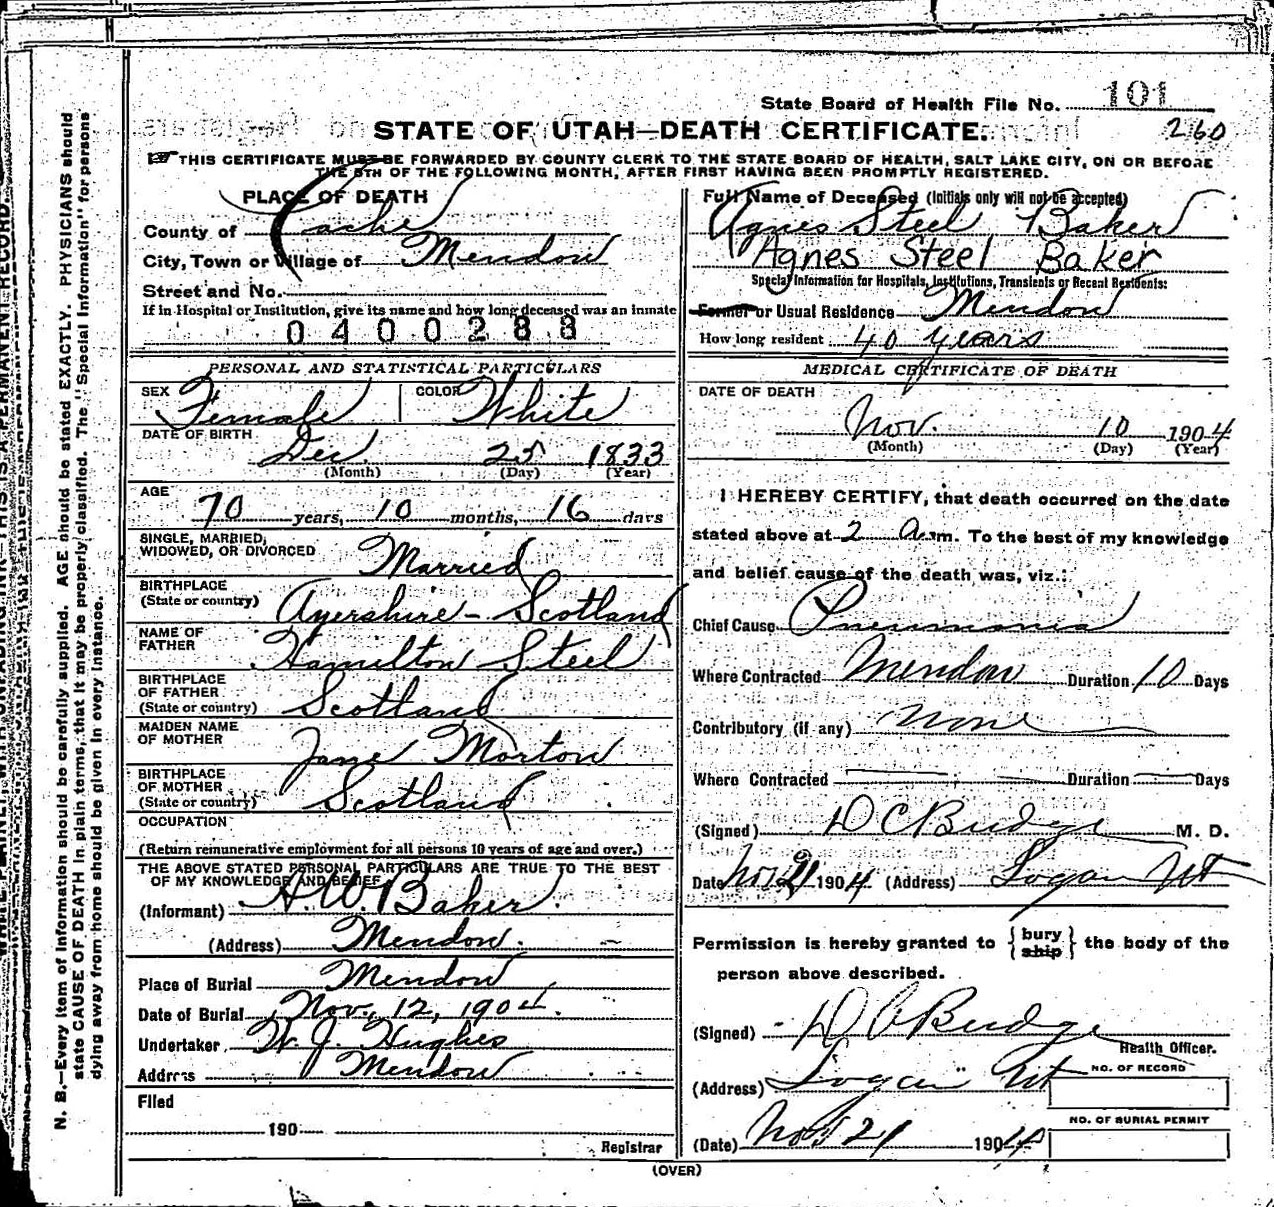 State Board of Health File No. 101
STATE OF UTAH—DEATH CERTIFICATE.
260
THIS CERTIFICATE MUST BE FORWARDED BY COUNTY CLERK TO THE STATE BOARD OF HEALTH, SALT LAKE CITY, ON OR BEFORE
THE 5TH OF THE FOLLOWING MONTH, AFTER FIRST HAVING BEEN PROMPTLY REGISTERED.
PLACE OF DEATH
County of Cache
City, Town or Village of Mendon
Street and No.
If in Hospital or Institution, give its name and how long deceased was an inmate
0400288
PERSONAL AND STATISTICAL PARTICULARS
SEX Female COLOR White
DATE OF BIRTH
Dec 25 1833
(Month) (Day) (Year)
AGE
70 years, 10 months, 16 days
SINGLE, MARRIED,
WIDOWED, OR DIVORCED Married
BIRTHPLACE
(State or country) Ayershire - Scotland
NAME OF
FATHER Hamilton Steel
BIRTHPLACE
OF FATHER
(State or country) Scotland
MAIDEN NAME
OF MOTHER Jane Morton
BIRTHPLACE
OF MOTHER
(State or country) Scotland
OCCUPATION
(Return remunerative employment for all persons 10 years of age and over.)
THE ABOVE STATED PERSONAL PARTICULARS ARE TRUE TO THE BEST
OF MY KNOWLEDGE AND BELIEF
(Informant) A. W. Baker
(Address) Mendon.
Place of Burial Mendon
Date of Burial Nov. 12, 1904.
Undertaker W. J. Hughes
Address Mendon
Filed
190
Registrar
Full Name of Deceased (Initials only will not be accepted)
Agnes Steel Baker
Agnes Steel Baker
Special Information for Hospitals, Institutions, Transients or Recent Residents:
Former or Usual Residence Mendon
How long resident 40 years
MEDICAL CERTIFICATE OF DEATH
DATE OF DEATH
Nov. 10 1904
(Month) (Day) (Year)
I HEREBY CERTIFY, that death occurred on the date
stated above at 2 a.m. To the best of my knowledge
and belief cause of the death was, viz.:
Chief Cause Pneumonia
Where Contracted Mendon Duration 10 Days
Contributory (if any) none
Where Contracted — Duration — Days
(Signed) D C Budge M. D.
Date Nov. 21 1904 (Address) Logan Ut
Permission is hereby granted to {bury ship} the body of the
person above described.
(Signed) D C Budge
Health Officer.
(Address) Logan Ut
NO. OF RECORD
NO. OF BURIAL PERMIT
(Date) Nov 21 1904
(OVER)
N. B.—Every item of information should be carefully supplied. AGE should be stated EXACTLY. PHYSICIANS should
state CAUSE OF DEATH in plain terms, that it may be properly classified. The "Special Information" for persons
dying away from home should be given in every instance.